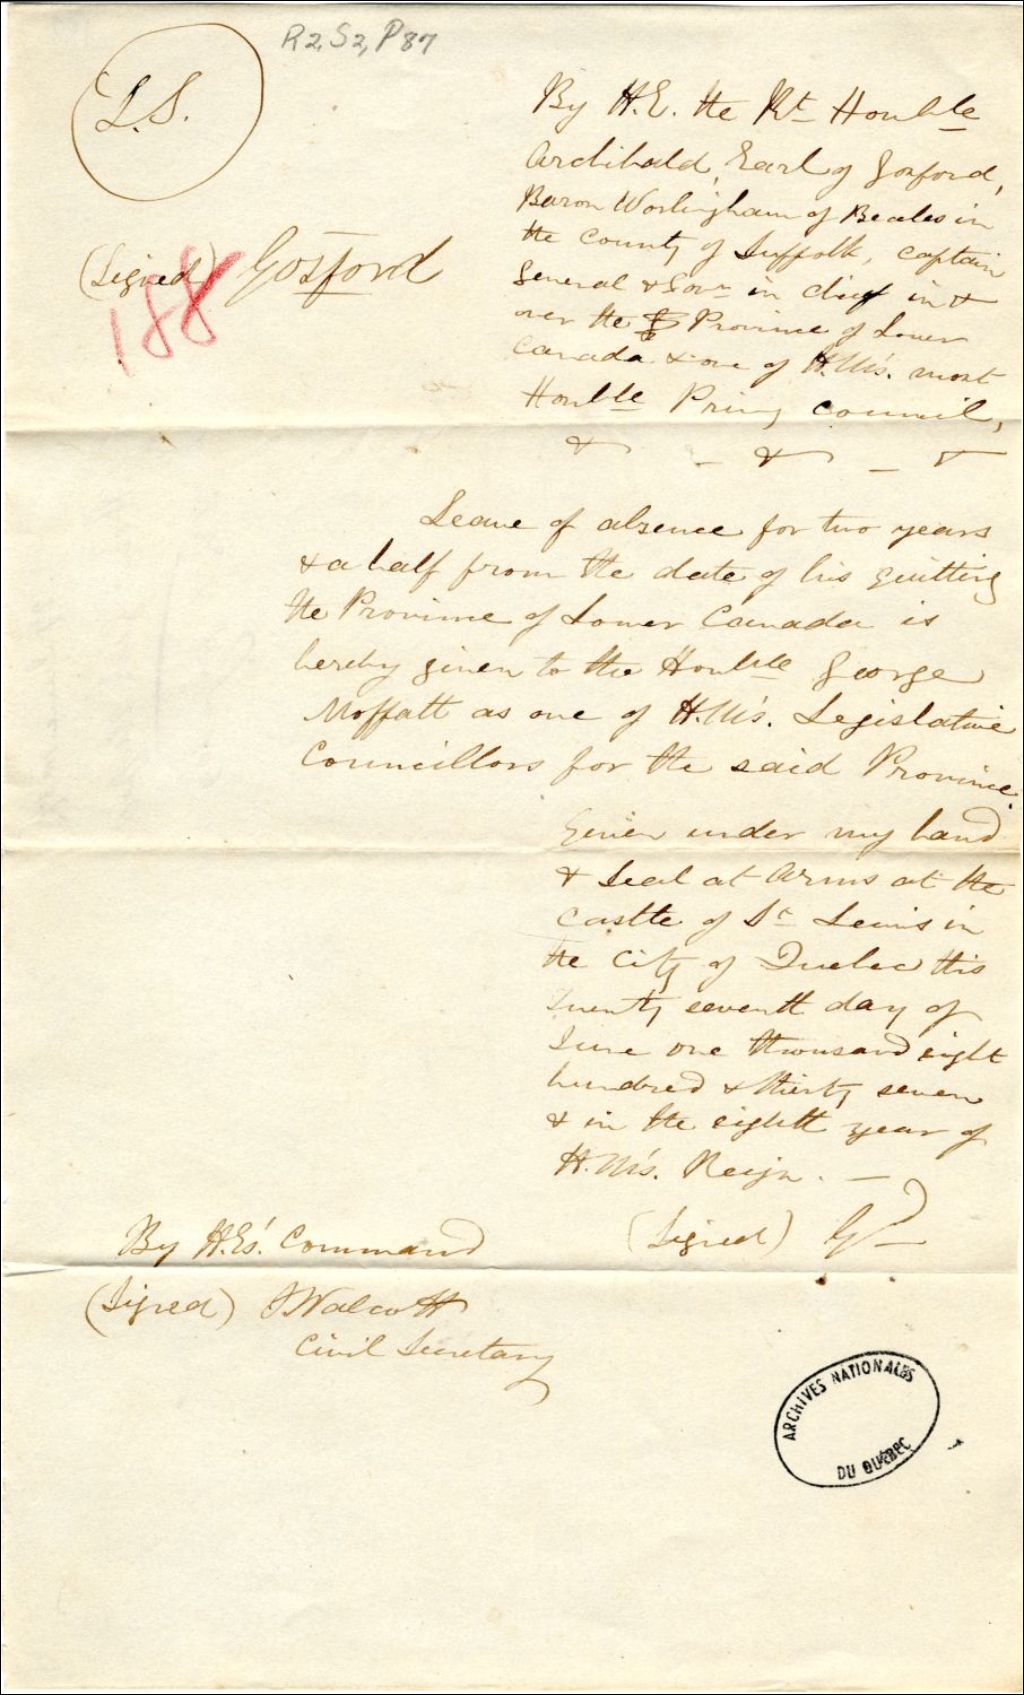 R2, S2, P87
L.S.
(Signed) Gosford
188
By H.E. the Rt. Honble
Archibald, Earl of Gosford,
Baron Worlingham of Beccles in
the County of Suffolk, Captain
General & Govr in chief in &
over the Province of Lower
Canada & one of H.M's. most
Honble Privy Council,
& – & – &
Leave of absence for two years
& a half from the date of his quitting
the Province of Lower Canada is
hereby given to the Honble George
Moffatt as one of H.M's. Legislative
Councillors for the said Province.
Given under my hand
& Seal at Arms at the
Castle of St Lewis in
the City of Quebec this
Twenty seventh day of
June one thousand eight
hundred & thirty seven
& in the eighth year of
H.M's. Reign. —
(Signed) Gd
By H.Es'. Command
(Signed) S Walcott
Civil Secretary
ARCHIVES NATIONALES
DU QUÉBEC